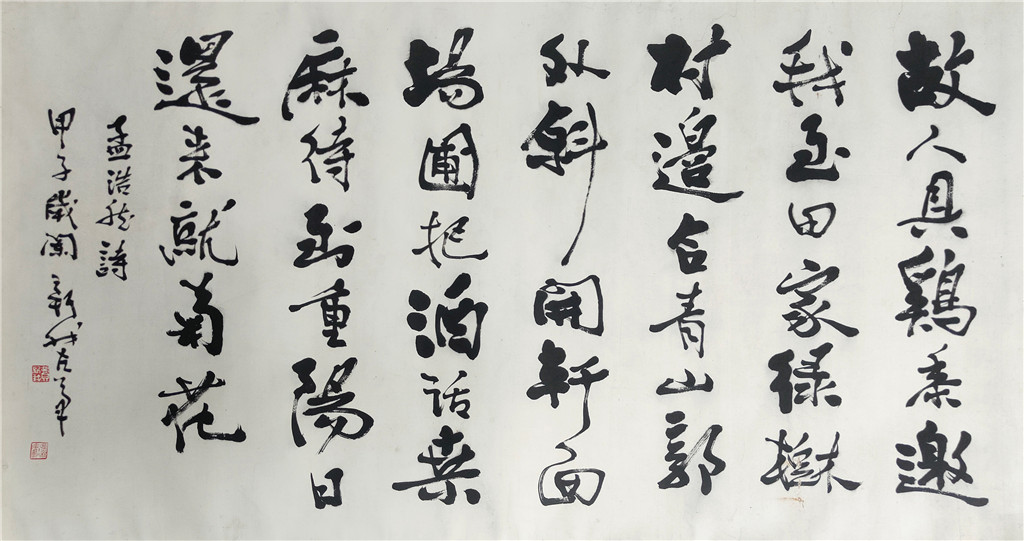 故人具鷄黍邀
我至田家緑樹
村邊合青山郭
外斜開軒面
場圃把酒話桑
麻待到重陽日
還来就菊花
孟浩然詩
甲子歲闌新我左筆